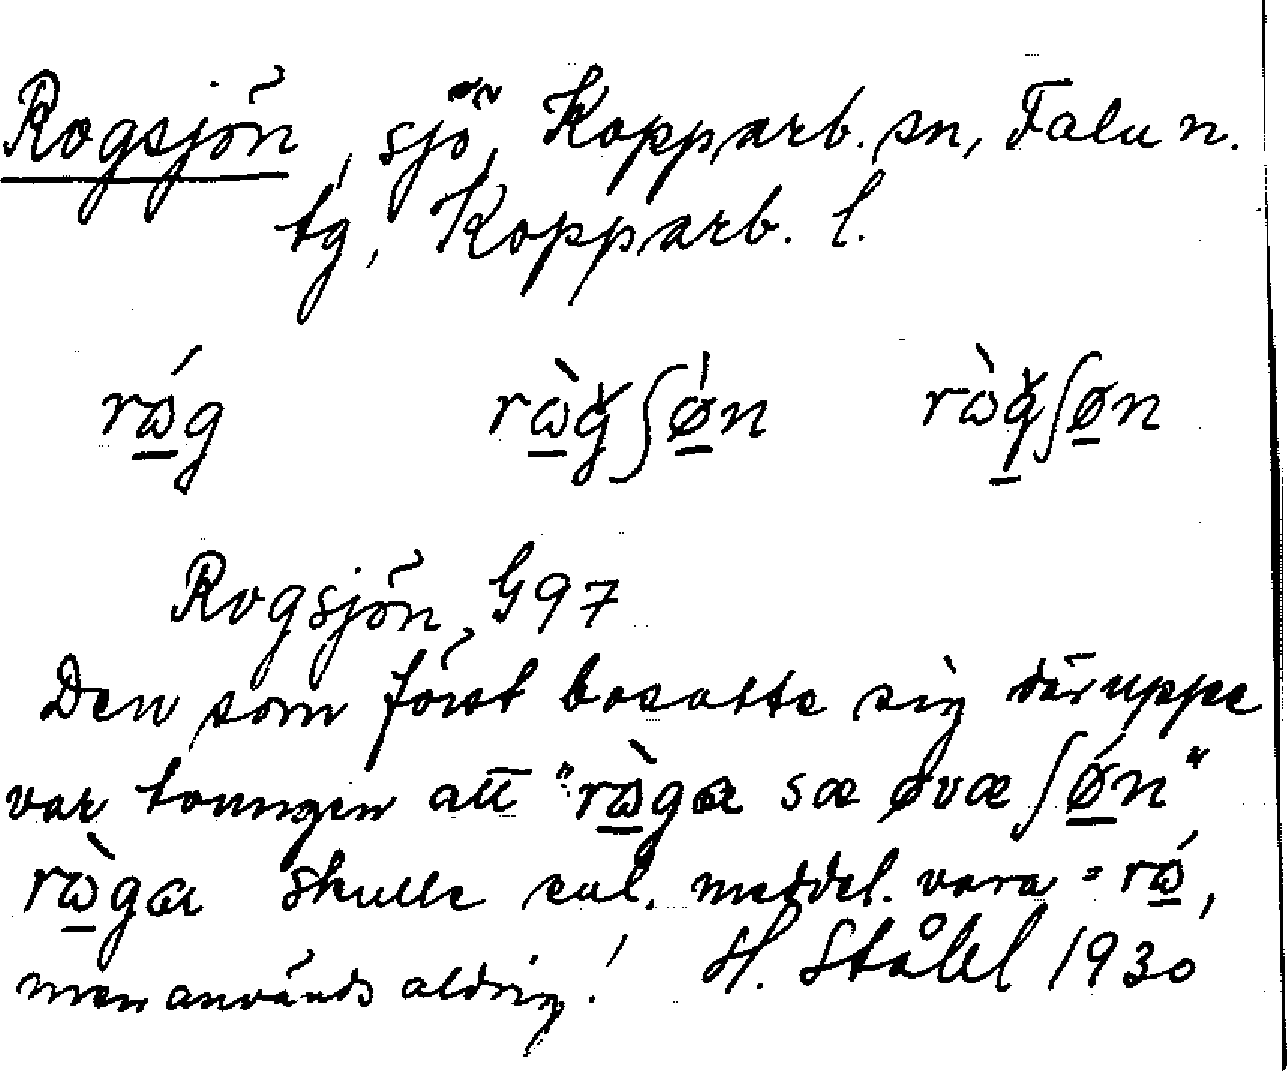 Rogsjön, sjö, Kopparb. sn, Falu n.
tg, Kopparb. l.
rɷ́g rɷ̀gʃøn rɷ̀gʃøn
Rogsjön G97
Den som först bosatte sig däruppe
var tvungen att "rɷ̀ga sæ øvæ ʃǿn"
rɷ̀ga skulle enl. meddel. vara = rɷ́,
men används aldrig! H. Ståhl 1930